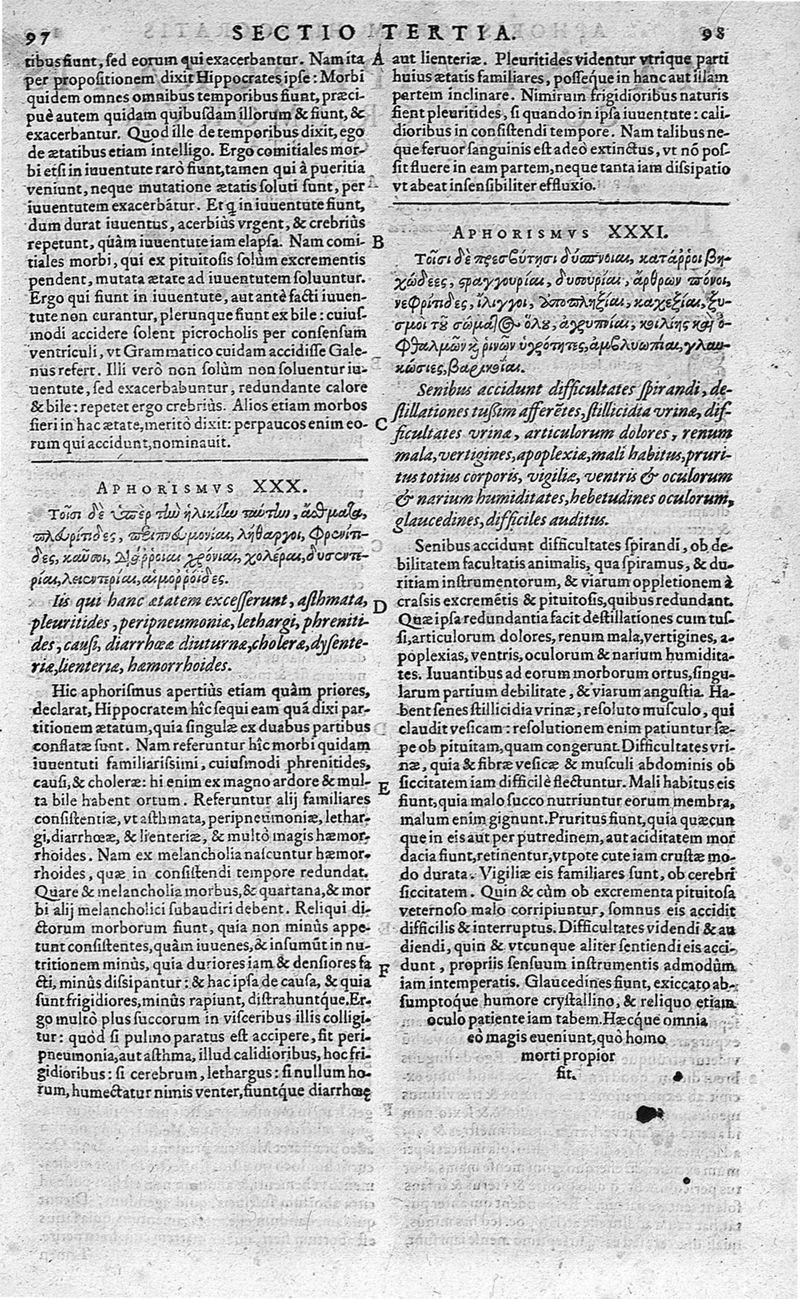 97 SECTIO TERTIA. 98
tibus fiunt, sed eorum qui exacerbantur. Nam ita
per propositionem dixit Hippocrates ipse: Morbi
quidem omnes omnibus temporibus fiunt, præci-
puè autem quidam quibusdam illorum & fiunt, &
exacerbantur. Quod ille de temporibus dixit, ego
de ætatibus etiam intelligo. Ergo comitiales mor-
bi etsi in iuuentute rarò fiunt, tamen qui à pueritia
veniunt, neque mutatione ætatis soluti sunt, per
iuuentutem exacerbātur. Et qͥ in iuuentute fiunt,
dum durat iuuentus, acerbiùs vrgent, & crebriùs
repetunt, quàm iuuentute iam elapsa. Nam comi-
tiales morbi, qui ex pituitosis solùm excrementis
pendent, mutata ætate ad iuuentutem soluuntur.
Ergo qui fiunt in iuuentute, aut antè facti iuuen-
tute non curantur, plerunque fiunt ex bile: cuius-
modi accidere solent picrocholis per consensum
ventriculi, vt Grammatico cuidam accidisse Gale-
nus refert. Illi verò non solùm non soluentur iu-
uentute, sed exacerbabuntur, redundante calore
& bile: repetet ergo crebriùs. Alios etiam morbos
fieri in hac ætate, meritò dixit: perpaucos enim eo-
rum qui accidunt, nominauit.
APHORISMVS XXX.
Τοῖσι δὲ ὑπὲρ τὴν ἡλικίην ταύτην, ἄσθματα,
πλευρίτιδες, περιπνευμονίαι, λήθαργοι, φρενίτι-
δες, καῦσοι, διάρροιαι χρόνιαι, χολέραι, δυσεντε-
ρίαι, λειεντερίαι, αἱμορροΐδες.
Iis qui hanc ætatem excesserunt, asthmata,
pleuritides, peripneumoniæ, lethargi, phreniti-
des, causi, diarrhœæ diuturnæ, choleræ, dysente-
riæ, lienteriæ, hæmorrhoides.
Hic aphorismus apertiùs etiam quàm priores,
declarat, Hippocratem hîc sequi eam quā dixi par-
titionem ætatum, quia singulæ ex duabus partibus
conflatæ sunt. Nam referuntur hîc morbi quidam
iuuentuti familiarissimi, cuiusmodi phrenitides,
causi, & choleræ: hi enim ex magno ardore & mul-
ta bile habent ortum. Referuntur alij familiares
consistentiæ, vt asthmata, peripneumoniæ, lethar-
gi, diarrhœæ, & lienteriæ, & multò magis hæmor-
rhoides. Nam ex melancholia nascuntur hæmor-
rhoides, quæ in consistendi tempore redundat.
Quare & melancholia morbus, & quartana, & mor
bi alij melancholici subaudiri debent. Reliqui di-
ctorum morborum fiunt, quia non minùs appe-
tunt consistentes, quàm iuuenes, & insumūt in nu-
tritionem minùs, quia duriores iam & densiores fa
cti, minùs dissipantur: & hac ipsa de causa, & quia
sunt frigidiores, minùs rapiunt, distrahuntque. Er-
go multò plus succorum in visceribus illis colligi-
tur: quòd si pulmo paratus est accipere, fit peri-
pneumonia, aut asthma, illud calidioribus, hoc fri-
gidioribus: si cerebrum, lethargus: si nullum ho-
rum, humectatur nimis venter, fiuntque diarrhœę
A
B
C
D
E
F
aut lienteriæ. Pleuritides videntur vtrique parti
huius ætatis familiares, posseque in hanc aut illam
partem inclinare. Nimirum frigidioribus naturis
fient pleuritides, si quando in ipsa iuuentute: cali-
dioribus in consistendi tempore. Nam talibus ne-
que feruor sanguinis est adeò extinctus, vt nō pos-
sit fluere in eam partem, neque tanta iam dissipatio
vt abeat insensibiliter effluxio.
APHORISMVS XXXI.
Τοῖσι δὲ πρεσβύτῃσι δύσπνοιαι, κατάρροι βη-
χώδεες, στραγγουρίαι, δυσουρίαι, ἄρθρων πόνοι,
νεφρίτιδες, ἴλιγγοι, ἀποπληξίαι, καχεξίαι, ξυ-
σμοὶ τοῦ σώματος ὅλου, ἀγρυπνίαι, κοιλίης καὶ ὀ-
φθαλμῶν καὶ ῥινῶν ὑγρότητες, ἀμβλυωπίαι, γλαυ-
κώσιες, βαρυηκοΐαι.
Senibus accidunt difficultates spirandi, de-
stillationes tussim afferētes, stillicidia vrinæ, dif-
ficultates vrinæ, articulorum dolores, renum
mala, vertigines, apoplexiæ, mali habitus, pruri-
tus totius corporis, vigiliæ, ventris & oculorum
& narium humiditates, hebetudines oculorum,
glaucedines, difficiles auditus.
Senibus accidunt difficultates spirandi, ob de-
bilitatem facultatis animalis, qua spiramus, & du-
ritiam instrumentorum, & viarum oppletionem à
crassis excremētis & pituitosis, quibus redundant.
Quæ ipsa redundantia facit destillationes cum tus-
si, articulorum dolores, renum mala, vertigines, a-
poplexias, ventris, oculorum & narium humidita-
tes. Iuuantibus ad eorum morborum ortus, singu-
larum partium debilitate, & viarum angustia. Ha-
bent senes stillicidia vrinæ, resoluto musculo, qui
claudit vesicam: resolutionem enim patiuntur sæ-
pe ob pituitam, quam congerunt. Difficultates vri-
næ, quia & fibræ vesicæ & musculi abdominis ob
siccitatem iam difficilè flectuntur. Mali habitus eis
fiunt, quia malo succo nutriuntur eorum membra,
malum enim gignunt. Pruritus fiunt, quia quæcun
que in eis aut per putredinem, aut aciditatem mor
dacia fiunt, retinentur, vtpote cute iam crustæ mo-
do durata. Vigiliæ eis familiares sunt, ob cerebri
siccitatem. Quin & cùm ob excrementa pituitosa
veternoso malo corripiuntur, somnus eis accidit
difficilis & interruptus. Difficultates videndi & au
diendi, quin & vtcunque aliter sentiendi eis acci-
dunt, propriis sensuum instrumentis admodùm
iam intemperatis. Glaucedines fiunt, exiccato ab-
sumptoque humore crystallino, & reliquo etiam
oculo patiente iam tabem. Hæcque omnia
eò magis eueniunt, quò homo
morti propior
fit.